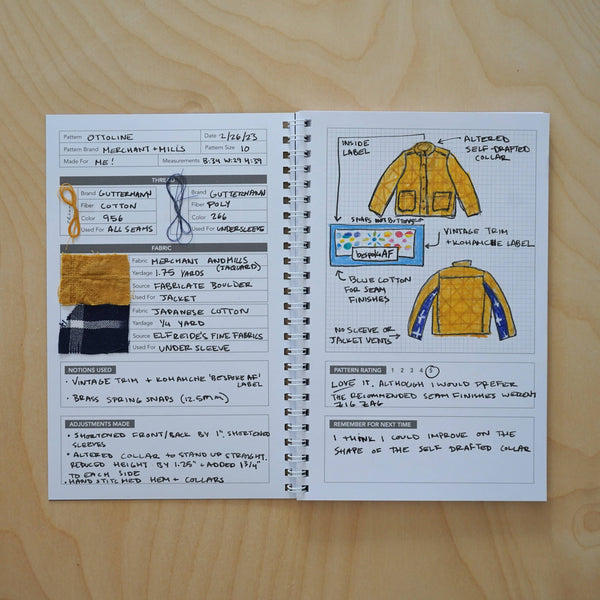 Pattern OTTOLINE Date 2/26/23
Pattern Brand MERCHANT + MILLS Pattern Size 10
Made For ME! Measurements B:34 W:29 H:39
THREAD
Brand GUTTERMANN
Fiber COTTON
Color 956
Used For ALL SEAMS
Brand GUTTERMANN
Fiber POLY
Color 266
Used For UNDERSLEEVE
FABRIC
Fabric MERCHANT AND MILLS
(JAQUARD)
Yardage 1.75 YARDS
Source FABRICATE BOULDER
Used For JACKET
Fabric JAPANESE COTTON
Yardage 1/4 YARD
Source ELFREIDE'S FINE FABRICS
Used For UNDER SLEEVE
NOTIONS USED
• VINTAGE TRIM + KOMAHCHE 'BESPOKE AF'
LABEL
• BRASS SPRING SNAPS (12.5mm)
ADJUSTMENTS MADE
• SHORTENED FRONT/BACK BY 1", SHORTENED
SLEEVES
• ALTERED COLLAR TO STAND UP STRAIGHT.
REDUCED HEIGHT BY 1.25" + ADDED 1 3/4"
TO EACH SIDE
• HAND STITCHED HEM + COLLARS
INSIDE
LABEL
ALTERED
SELF-DRAFTED
COLLAR
SNAPS NOT BUTTONS
bespokeAF
VINTAGE TRIM
+ KOMAHCHE LABEL
BLUE COTTON
FOR SEAM
FINISHES
NO SLEEVE OR
JACKET VENTS
PATTERN RATING 1 2 3 4 5
LOVE IT, ALTHOUGH I WOULD PREFER
THE RECOMMENDED SEAM FINISHES WERENT
ZIG ZAG
REMEMBER FOR NEXT TIME
I THINK I COULD IMPROVE ON THE
SHAPE OF THE SELF DRAFTED COLLAR